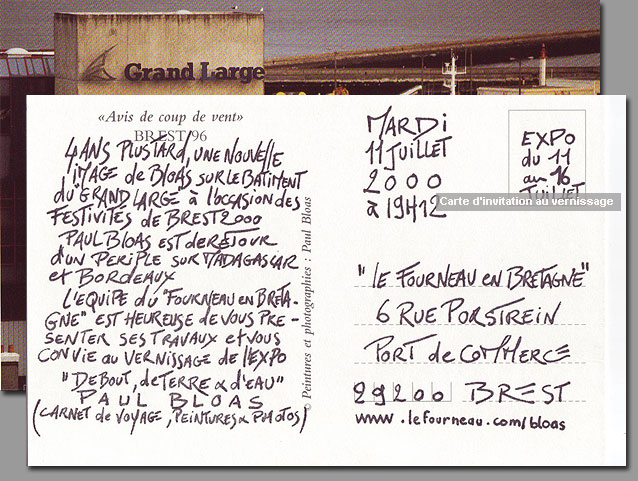 Grand Large
«Avis de coup de vent»
BREST 96
4 ANS PLUS TARD, UNE NOUVELLE
IMAGE de BLOAS SUR LE BATIMENT
du "GRAND LARGE" à l'occasion des
FESTIVITES de BREST 2000
PAUL BLOAS EST de RETOUR
d'UN PERIPLE SUR MADAGASCAR
et BORDEAUX
L'EQUIPE du "FOURNEAU en BRETA-
GNE" EST HEUREUSE de VOUS PRE-
SENTER SES TRAVAUX et VOUS
CONVIE AU VERNISSAGE de l'EXPO
"DEBOUT, de TERRE & d'EAU"
PAUL BLOAS
(CARNET de VOYAGE, PEINTURES & PHOTOS)
© Peintures et photographies : Paul Bloas
MARDI
11 JUILLET
2000
à 19H12
EXPO
du 11
au 16
JUILLET
Carte d'invitation au vernissage
"LE FOURNEAU en BRETAGNE"
6 RUE PORSTREIN
PORT de COMMERCE
29200 BREST
www.lefourneau.com/bloas